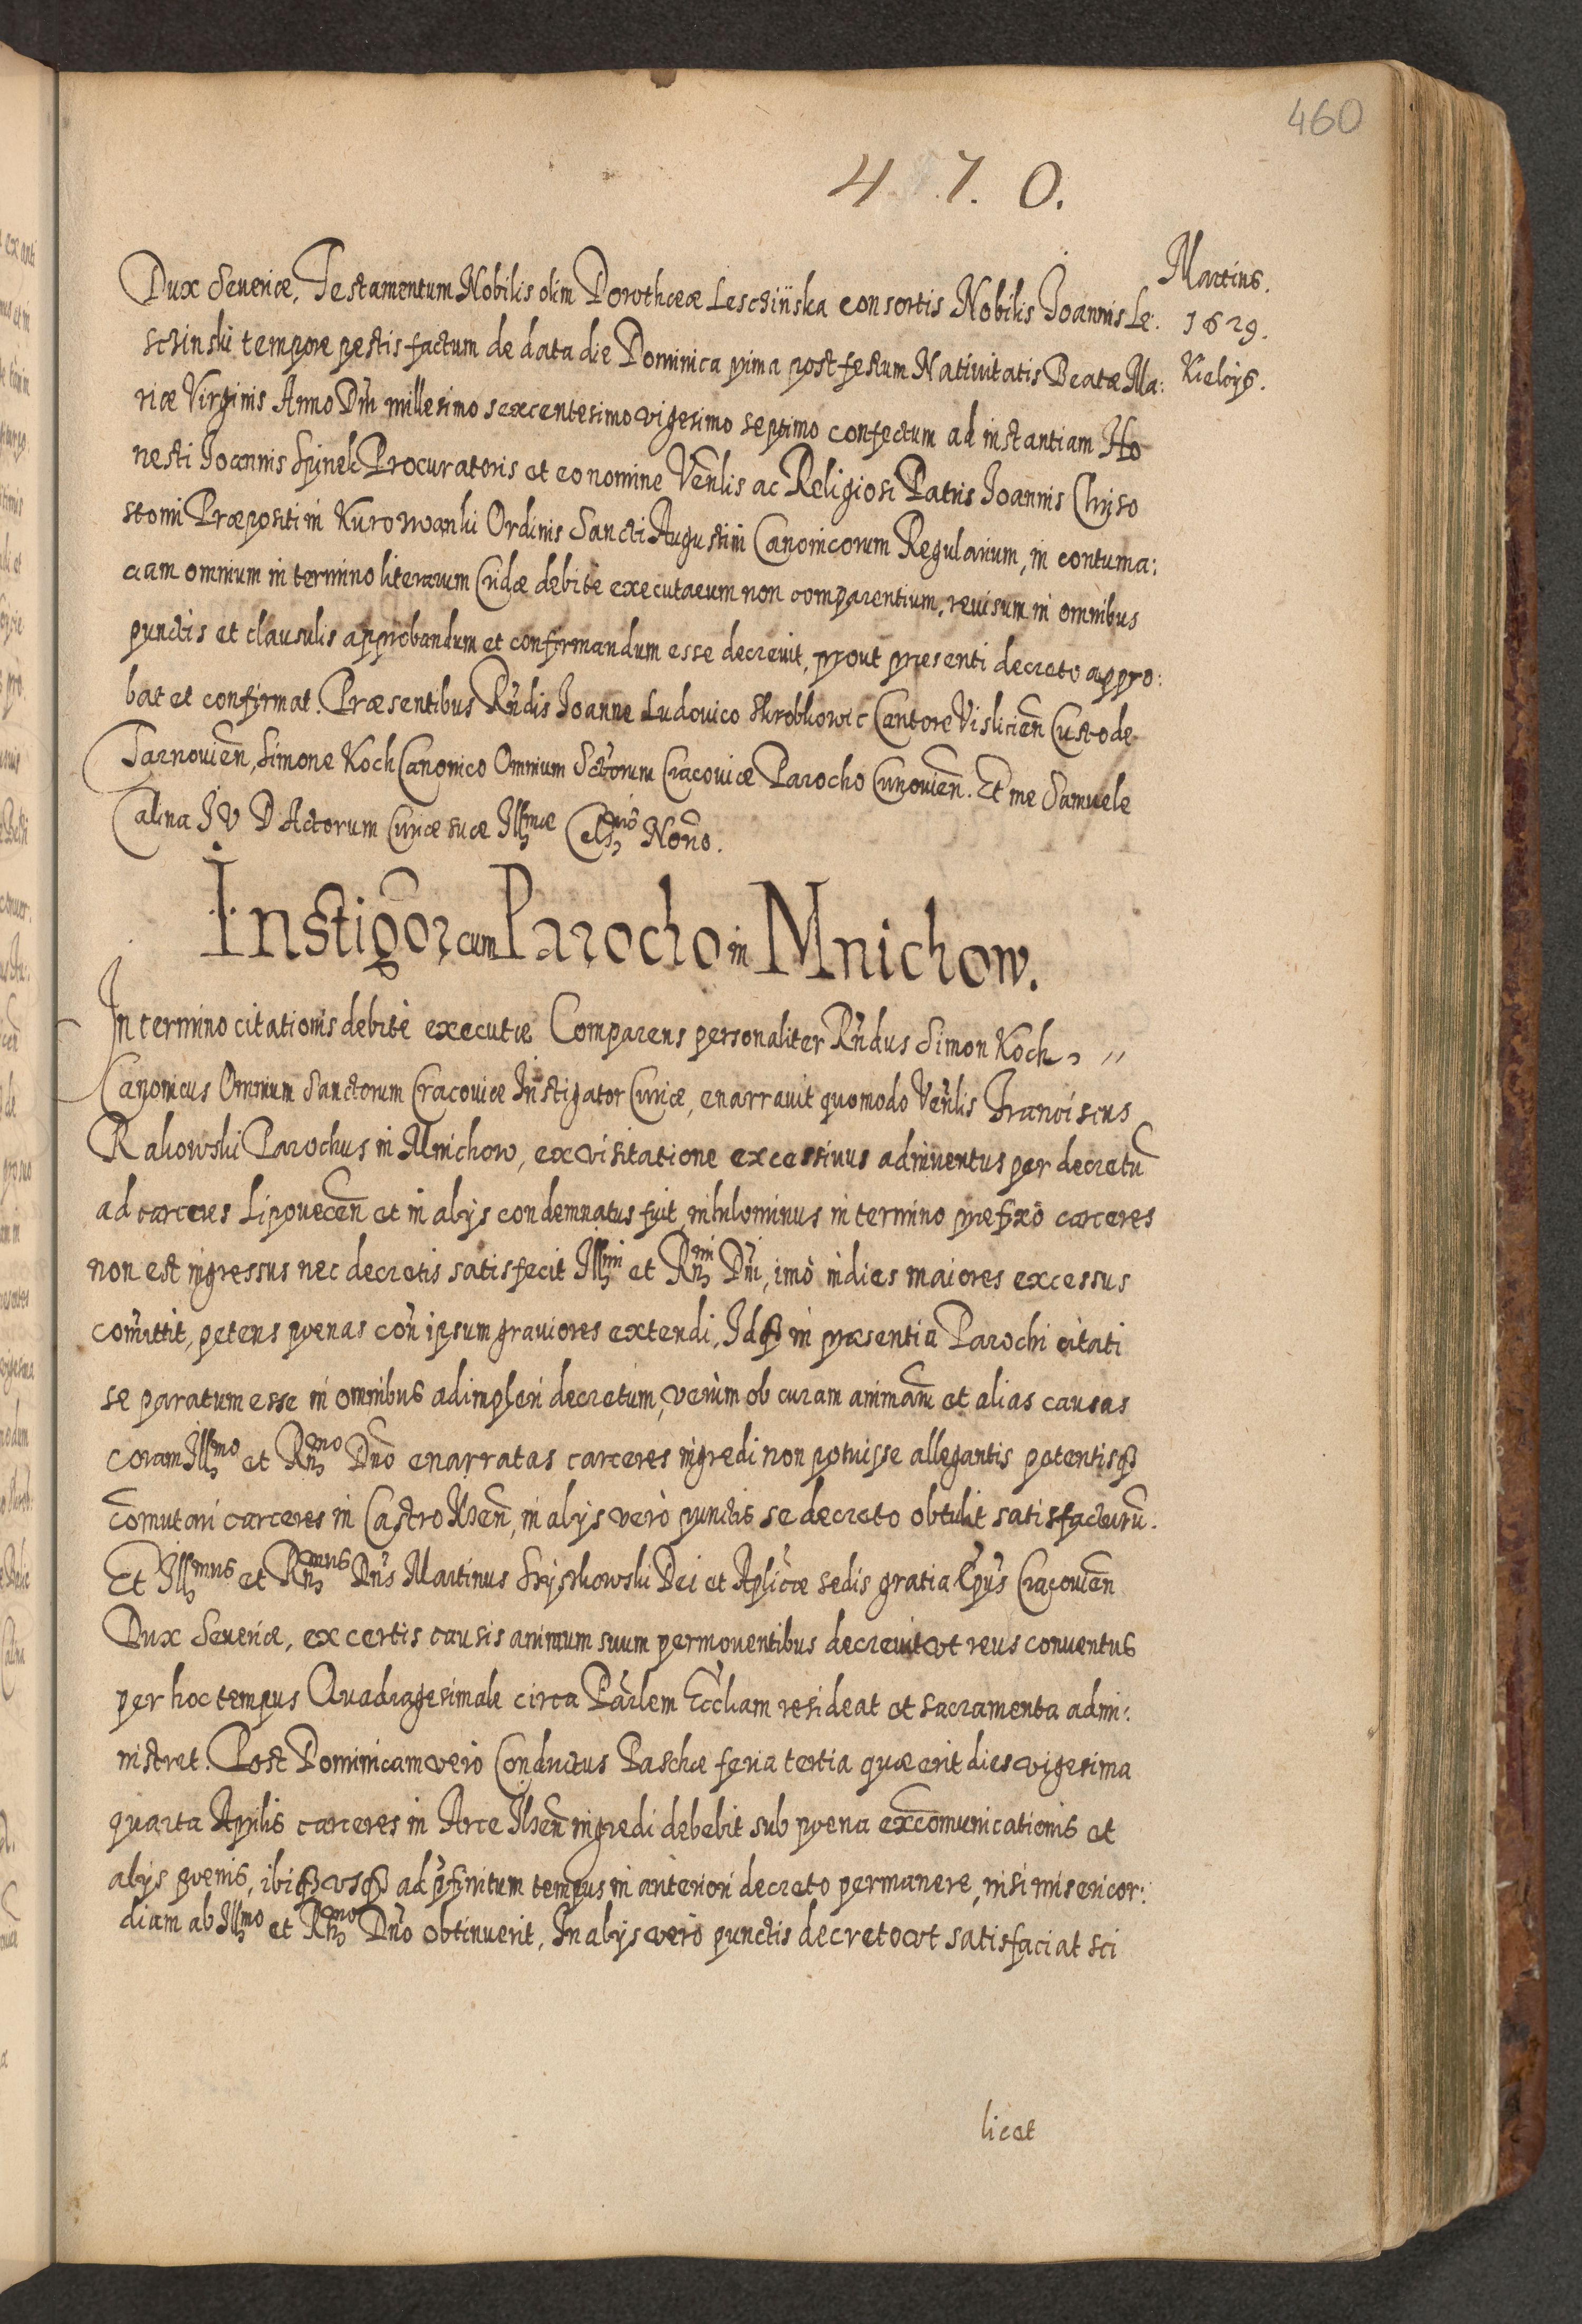 460
4.7.0.
Martius.
1629.
Kielcijs.
Dux Seueriæ, Testamentum Nobilis olim Dorotheæ Lesczÿnska consortis Nobilis Joannis Le:
sczinski tempore pestis factum de data die Dominica prima post festum Natiuitatis Beatæ Ma:
riæ Virginis Anno Dñi millesimo sexcentesimo vigesimo septimo confectum ad instantiam Ho
nesti Joannis Spinek Procuratoris et eo nomine Venlis ac Religiosi Patris Joannis Chriso
stomi Præpositi in Kurozwanki Ordinis Sancti Augustini Canonicorum Regularium, in contuma:
ciam omnium in termino literarum Cridæ debitè executarum non comparentium, reuisum in omnibus
punctis et clausulis approbandum et confirmandum esse decreuit, prout præsenti decreto appro:
bat et confirmat. Præsentibus Rñdis Joanne Ludouico Skrobkowic Cantore Visliciеñ Custode
Tarnouieñ, Simone Koch Canonico Omnium Sctorum Cracouiæ Parocho Cunouieñ. Et me Samuele
Calina J V D Actorum Curiæ suæ Illmæ Clsnis Notño.
Instigõr cum Parocho in Mnichow.
In termino citationis debitè executæ Comparens personaliter Rñdus Simon Koch
Canonicus Omnium Sanctorum Cracouiæ Instigator Curiæ, enarrauit quomodo Veñlis Franciscus
Rakowski Parochus in Mnichow, ex visitatione excessiuus adinuentus per decretũ
ad carceres Lipoueceñ et in alijs condemnatus fuit, nihilominus in termino præfixo carceres
non est ingressus nec decretis satisfecit Illmi et Rñmi Dñi, imò in dies maiores excessus
com̃ittit, petens pœnas coñ ipsum grauiores extendi, Idqȝ in præsentia Parochi citati
se paratum esse in omnibus adimpleri decretum, verùm ob curam animaȓ et alias causas
coram Illmo et Rñmo Dño enarratas carceres ingredi non potuisse allegantis petentisqȝ
com̃utari carceres in Castro Ilzeñ, in alijs verò punctis se decreto obtulit satisfacturũ.
Et Illmus et Rñmus Dñs Martinus Szyszkowski Dei et Aplicæ sedis gratia Epũs Cracouieñ
Dux Seueriæ, ex certis causis animum suum permouentibus decreuit vt reus conuentus
per hoc tempus Quadragesimale circa Parlem Eccliam resideat et sacramenta admi:
nistret. Post Dominicam verò Conductus Paschæ feria tertia quæ erit dies vigesima
quarta Aprilis carceres in Arce Ilzeñ ingredi debebit sub pœna excom̃unicationis et
alijs pœnis, ibiqȝ vsqȝ ad p̃finitum tempus in anteriori decreto permanere, nisi misericor:
diam ab Illmo et Rñmo Dño obtinuerit, In alijs verò punctis decreto vt satisfaciat sci
licet